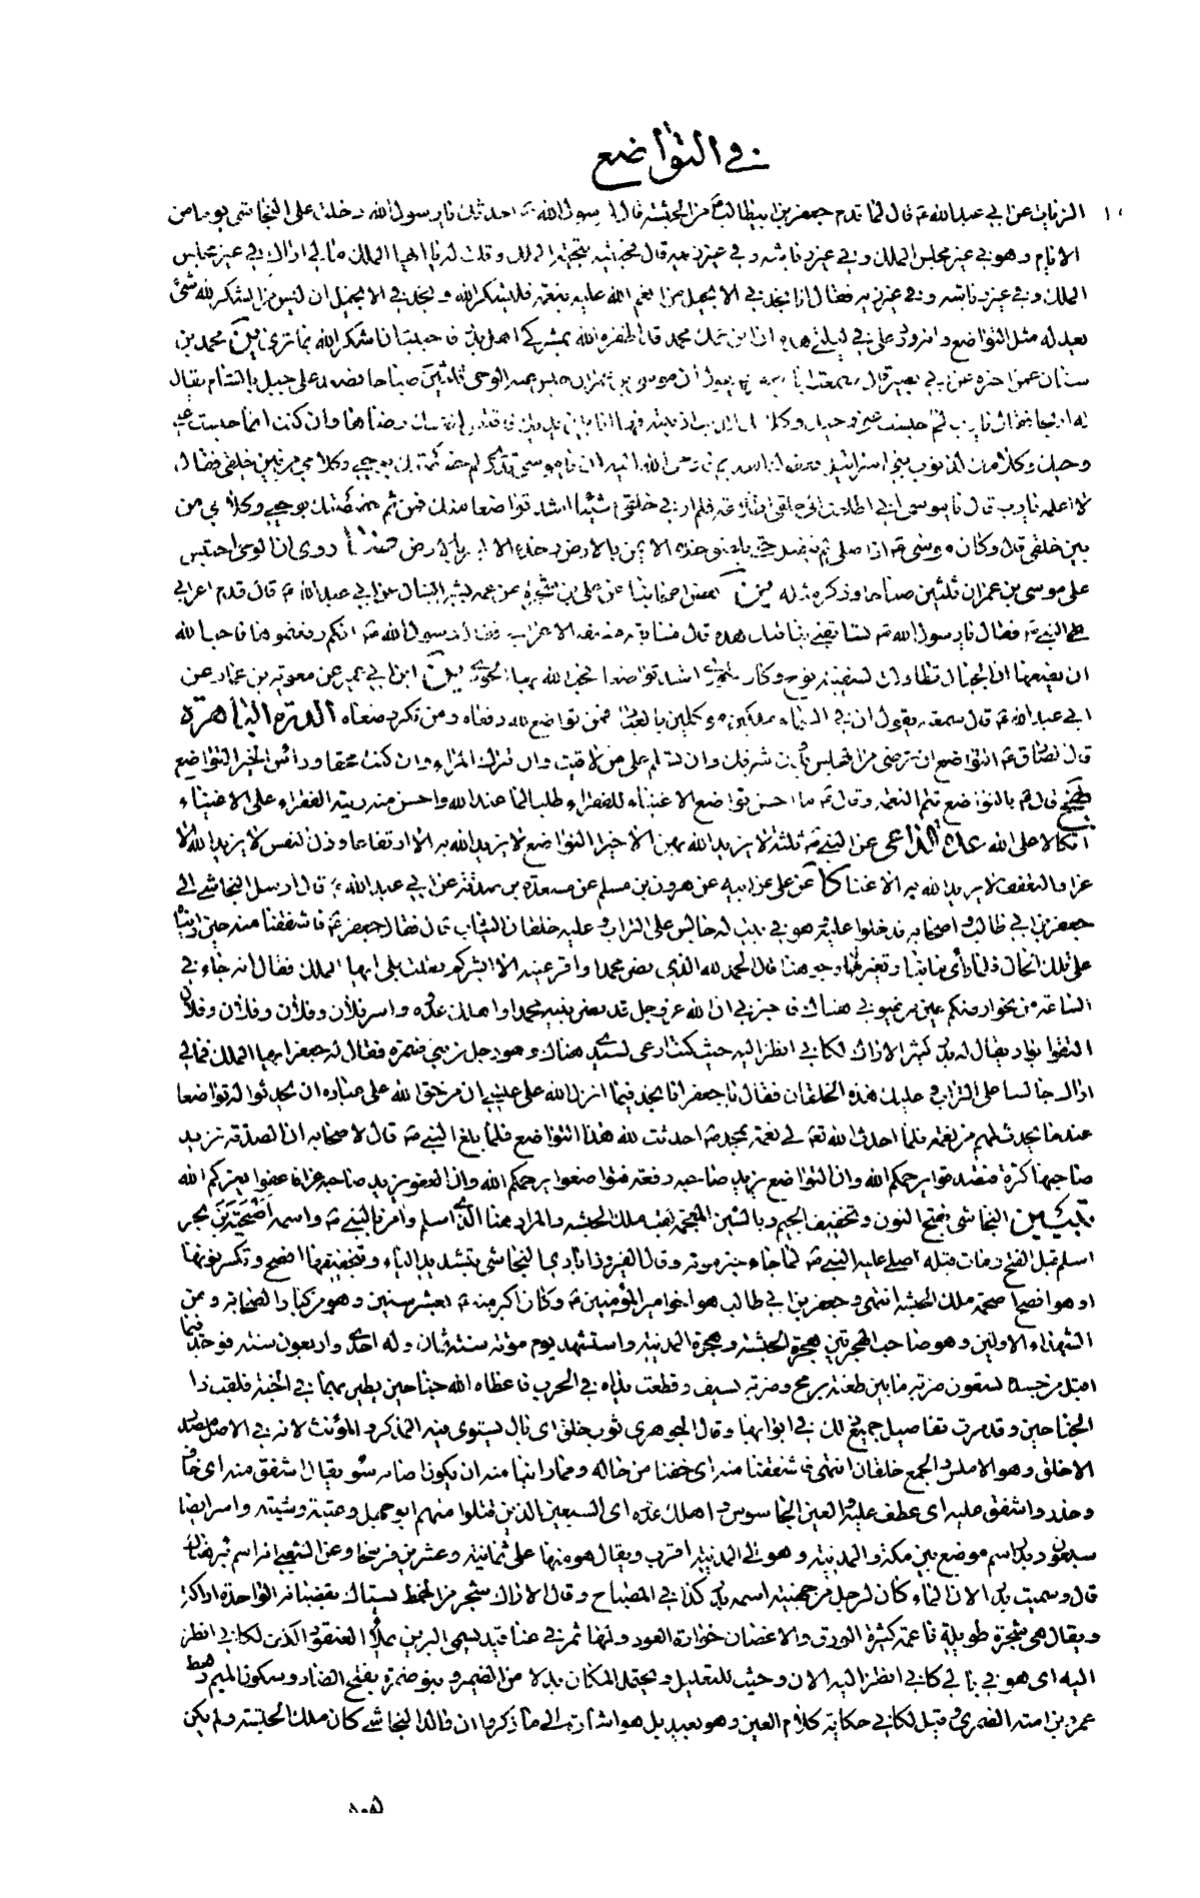 في التواضع
الزيات عن ابي عبد الله ع قال لما قدم جعفر بن ابيطالب من الحبشة قال لرسول الله ص احدثك يا رسول الله دخلت على النجاشي يوما من
الايام وهو في غير مجلس الملك وفي غير رياشه وفي غير زيه قال فحييته بتحية الملك وقلت له يا ايها الملك مالي اراك في غير مجلس
الملك وفي غير رياشه وفي غير زيه فقال انا نجد في الانجيل من انعم الله عليه بنعمة فليشكر الله ونجد في الانجيل ان ليس من الشكر لله شئ
يعدله مثل التواضع وانه ورد علي في ليلتي هذه ان ابن عمك محمد قد اظفره الله بمشركي اهل بدر فاحببت ان اشكر الله بما ترى ين محمد بن
سنان عمن اخبره عن ابي بصير قال سمعت ان موسى بن عمران حبس عنه الوحي ثلثين صباحا فصعد على جبل بالشام يقال
له اريحا فقال يا رب لم حبست عني وحيك وكلامك الذنب اذنبته فها انا بين يديك فاقتص لنفسك رضاها وان كنت انما حبست عني
وحيك وكلامك لذنوب بني اسرائيل فعفوك القديم فاوحى الله اليه ان يا موسى تدري لم خصصتك بوحيي وكلامي من بين خلقي فقال
لا اعلمه يا رب قال يا موسى اني اطلعت الى خلقي اطلاعة فلم ار في خلقي شيئا اشد تواضعا منك فمن ثم خصصتك بوحيي وكلامي من
بين خلقي قال وكان موسى ع اذا صلى لم ينفتل حتى يلصق خده الايمن بالارض وخده الايسر بالارض روى ان الوحي احتبس
على موسى بن عمران ثلثين صباحا وذكر مثله ين بعض اصحابنا عن علي بن شجرة عن عمه بشير النبال عن ابي عبد الله ع قال قدم اعرابي
على النبي ص فقال يا رسول الله تسابقني بناقتك هذه قال فسابقه فسبقه الاعرابي فقال رسول الله ص انكم رفعتموها فاحب الله
ان يضعها ان الجبال تطاولت لسفينة نوح وكان الجودي اشد تواضعا فحبا الله بها الجودي ين ابن ابي عمير عن معوية بن عمار عن
ابي عبد الله ع قال سمعته يقول ان في السماء ملكين موكلين بالعباد فمن تواضع لله رفعاه ومن تكبر وضعاه الدرة الباهرة
قال الصادق ع التواضع ان ترضى من المجلس بدون شرفك وان تسلم على من لاقيت وان تترك المراء وان كنت محقا وراس الخير التواضع
نهج قال ع بالتواضع تتم النعمة وقال ع ما احسن تواضع الاغنياء للفقراء طلبا لما عند الله واحسن منه تيه الفقراء على الاغنياء
اتكالا على الله عدة الداعي عن النبي ص ثلثة لا يزيد الله بهن الا خيرا التواضع لا يزيد الله به الا ارتفاعا وذل النفس لا يزيد الله به الا
عزا والتعفف لا يزيد الله به الا غنا كا عن علي عن ابيه عن هرون بن مسلم عن مسعدة بن صدقة عن ابي عبد الله ع قال ارسل النجاشي الى
جعفر بن ابي طالب واصحابه فدخلوا عليه وهو في بيت له جالس على التراب وعليه خلقان الثياب قال فقال جعفر ع فاشفقنا منه حين رايناه
على تلك الحال فلما راى ما بنا وتغير وجوهنا قال الحمد لله الذي نصر محمدا واقر عينه الا ابشركم فقلت بلى ايها الملك فقال انه جاءني
الساعة من نحو ارضكم عين من عيوني هناك فاخبرني ان الله عز وجل قد نصر نبيه محمدا واهلك عدوه واسر فلان وفلان وفلان وفلان
التقوا بواد يقال له بدر كثير الاراك لكاني انظر اليه حيث كنت ارعى لسيدي هناك وهو رجل من بني ضمرة فقال له جعفر ايها الملك فمالي
اراك جالسا على التراب وعليك هذه الخلقان فقال يا جعفر انا نجد فيما انزل الله على عيسى ان من حق الله على عباده ان يحدثوا له تواضعا
عند ما يحدث لهم من نعمة فلما احدث الله تعالى لي نعمة بمحمد ص احدثت لله هذا التواضع فلما بلغ النبي ص قال لاصحابه ان الصدقة تزيد
صاحبها كثرة فتصدقوا يرحمكم الله وان التواضع يزيد صاحبه رفعة فتواضعوا يرحمكم الله وان العفو يزيد صاحبه عزا فاعفوا يعزكم الله
تبيين النجاشي بفتح النون وتخفيف الجيم وبالشين المعجمة لقب ملك الحبشة والمراد هنا الذي اسلم وآمن بالنبي ص واسمه اصحمة بن بحر
اسلم قبل الفتح ومات قبله صلى عليه النبي ص لما جاء خبر موته وقال الفيروزابادي النجاشي بتشديد الياء وبتخفيفها افصح وتكسر نونها
او هو افصح اصحمة ملك الحبشة انتهى وجعفر بن ابي طالب هو اخو امير المؤمنين ع وكان اكبر منه ع بعشر سنين وهو من كبار الصحابة ومن
الشهداء الاولين وهو صاحب الهجرتين هجرة الحبشة وهجرة المدينة واستشهد يوم موتة سنة ثمان وله احدى واربعون سنة فوجد فيما
اقبل من جسده تسعون ضربة ما بين طعنة برمح وضربة بسيف وقطعت يداه في الحرب فاعطاه الله جناحين يطير بهما في الجنة فلقب ذا
الجناحين وقد مرت تفاصيل جميع ذلك في ابوابها وقال الجوهري ثوب خلق اي بال يستوي فيه المذكر والمؤنث لانه في الاصل مصدر
الاخلق وهو الاملس والجمع خلقان انتهى فاشفقنا منه اي خفنا من حاله ومما راينا منه ان يكون اصابه سوء يقال اشفق منه اي خاف
وحذر واشفق عليه اي عطف عليه والعين الجاسوس واهلك عدوه اي السبعين الذين قتلوا منهم ابو جهل وعتبة وشيبة واسر ايضا
سبعون وبدر اسم موضع بين مكة والمدينة وهو الى المدينة اقرب ويقال هو منها على ثمانية وعشرين فرسخا وعن الشعبي انه اسم بئر هناك
قال وسميت بدرا لان الماء كان لرجل من جهينة اسمه بدر كذا في المصباح وقال الاراك شجر من الحمض يستاك بقضبانه الواحدة اراكة
ويقال هي شجرة طويلة ناعمة كثيرة الورق والاغصان خوارة العود ولها ثمر في عناقيد يسمى البرير يملأ العنقود الكف لكاني انظر
اليه اي هو في بالي كاني انظر اليه الان وحيث للتعليل ويحتمل المكان بدلا من الضمير وبنو ضمرة بفتح الضاد وسكون الميم رهط
عمرو بن امية الضمري وقيل لكاني حكاية كلام العين وهو بعيد بل هو اشارة الى ما ذكروا ان والد النجاشي كان ملك الحبشة ولم يكن